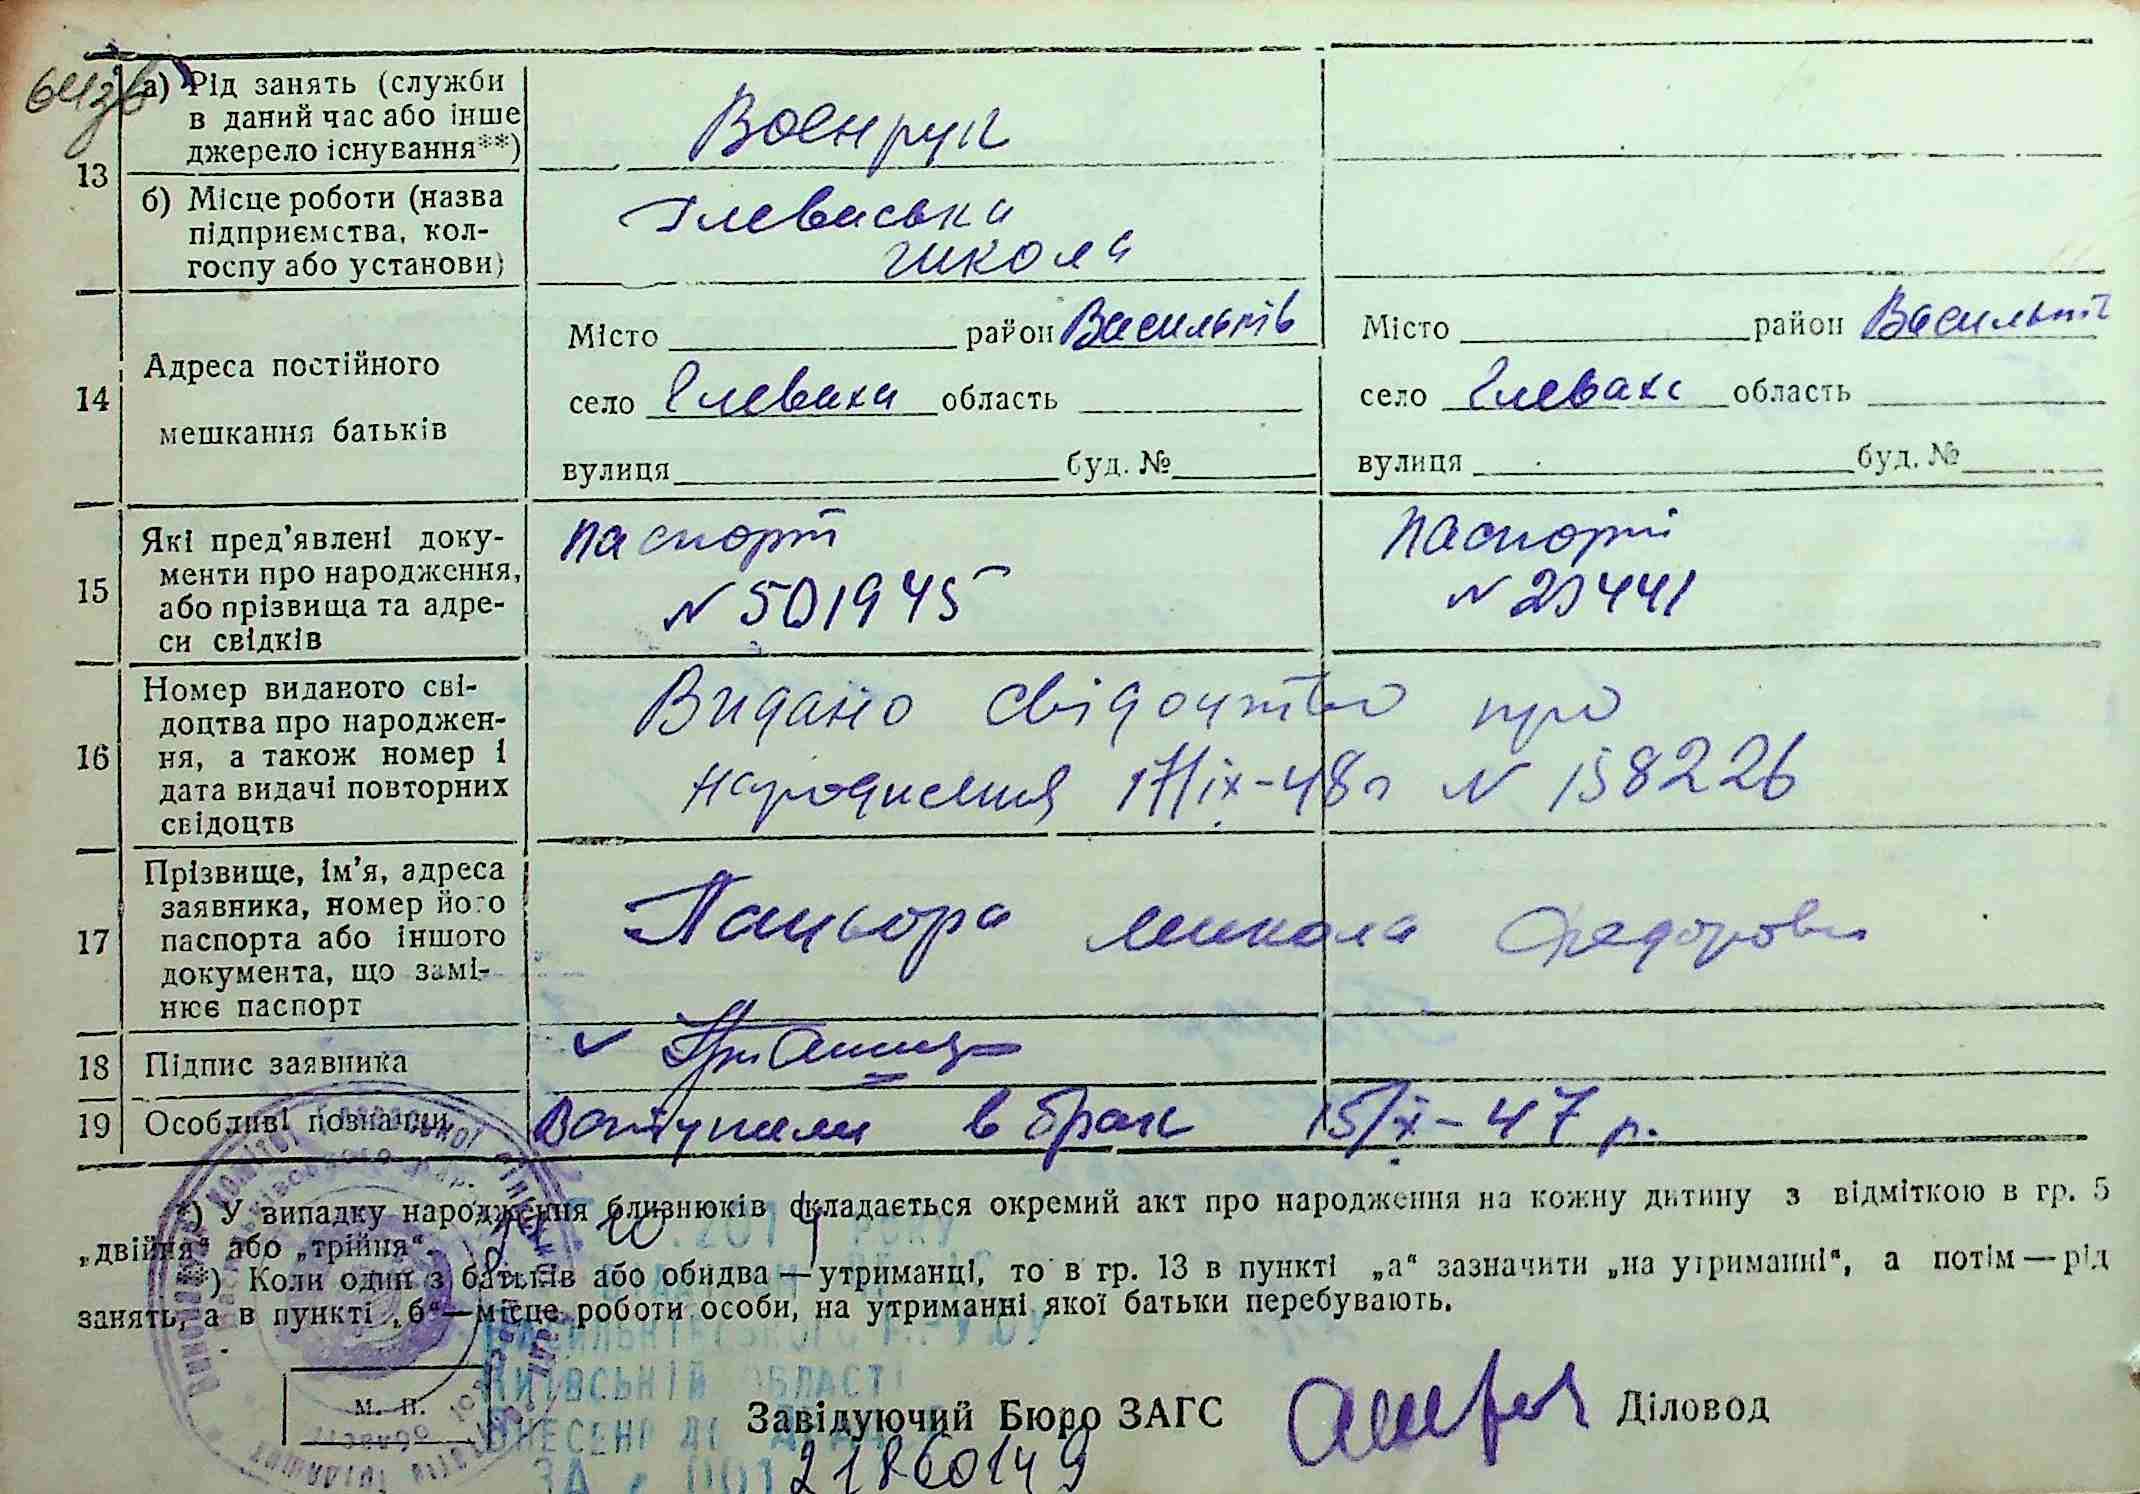 13
а) Рід занять (служби
в даний час або інше
джерело існування**)
Воєнрук
б) Місце роботи (назва
підприємства, кол-
госпу або установи)
Глеваська
школа
14
Адреса постійного
мешкання батьків
Місто район Васильків
село Глеваха область
вулиця буд. №
Місто район Васильків
село Глеваха область
вулиця буд. №
15
Які пред'явлені доку-
менти про народження,
або прізвища та адре-
си свідків
паспорт
N 501945
паспорт
N 21441
16
Номер виданого сві-
доцтва про народжен-
ня, а також номер і
дата видачі повторних
свідоцтв
Видано свідоцтво про
народження 17/ix-48 р N 158226
17
Прізвище, ім'я, адреса
заявника, номер його
паспорта або іншого
документа, що замі-
нює паспорт
Пацьора Микола Федорович
18
Підпис заявника
19
Особливі позначки
Вступили в брак 15/x-47 р.
*) У випадку народження близнюків складається окремий акт про народження на кожну дитину з відміткою в гр. 5
„двійня" або „трійня".
**) Коли один з батьків або обидва—утриманці, то в гр. 13 в пункті „а" зазначити „на утриманні", а потім—рід
занять, а в пункті „б"—місце роботи особи, на утриманні якої батьки перебувають.
М. П.
КИЇВСЬКІЙ ОБЛАСТІ
Завідуючий Бюро ЗАГС
Діловод
21860149